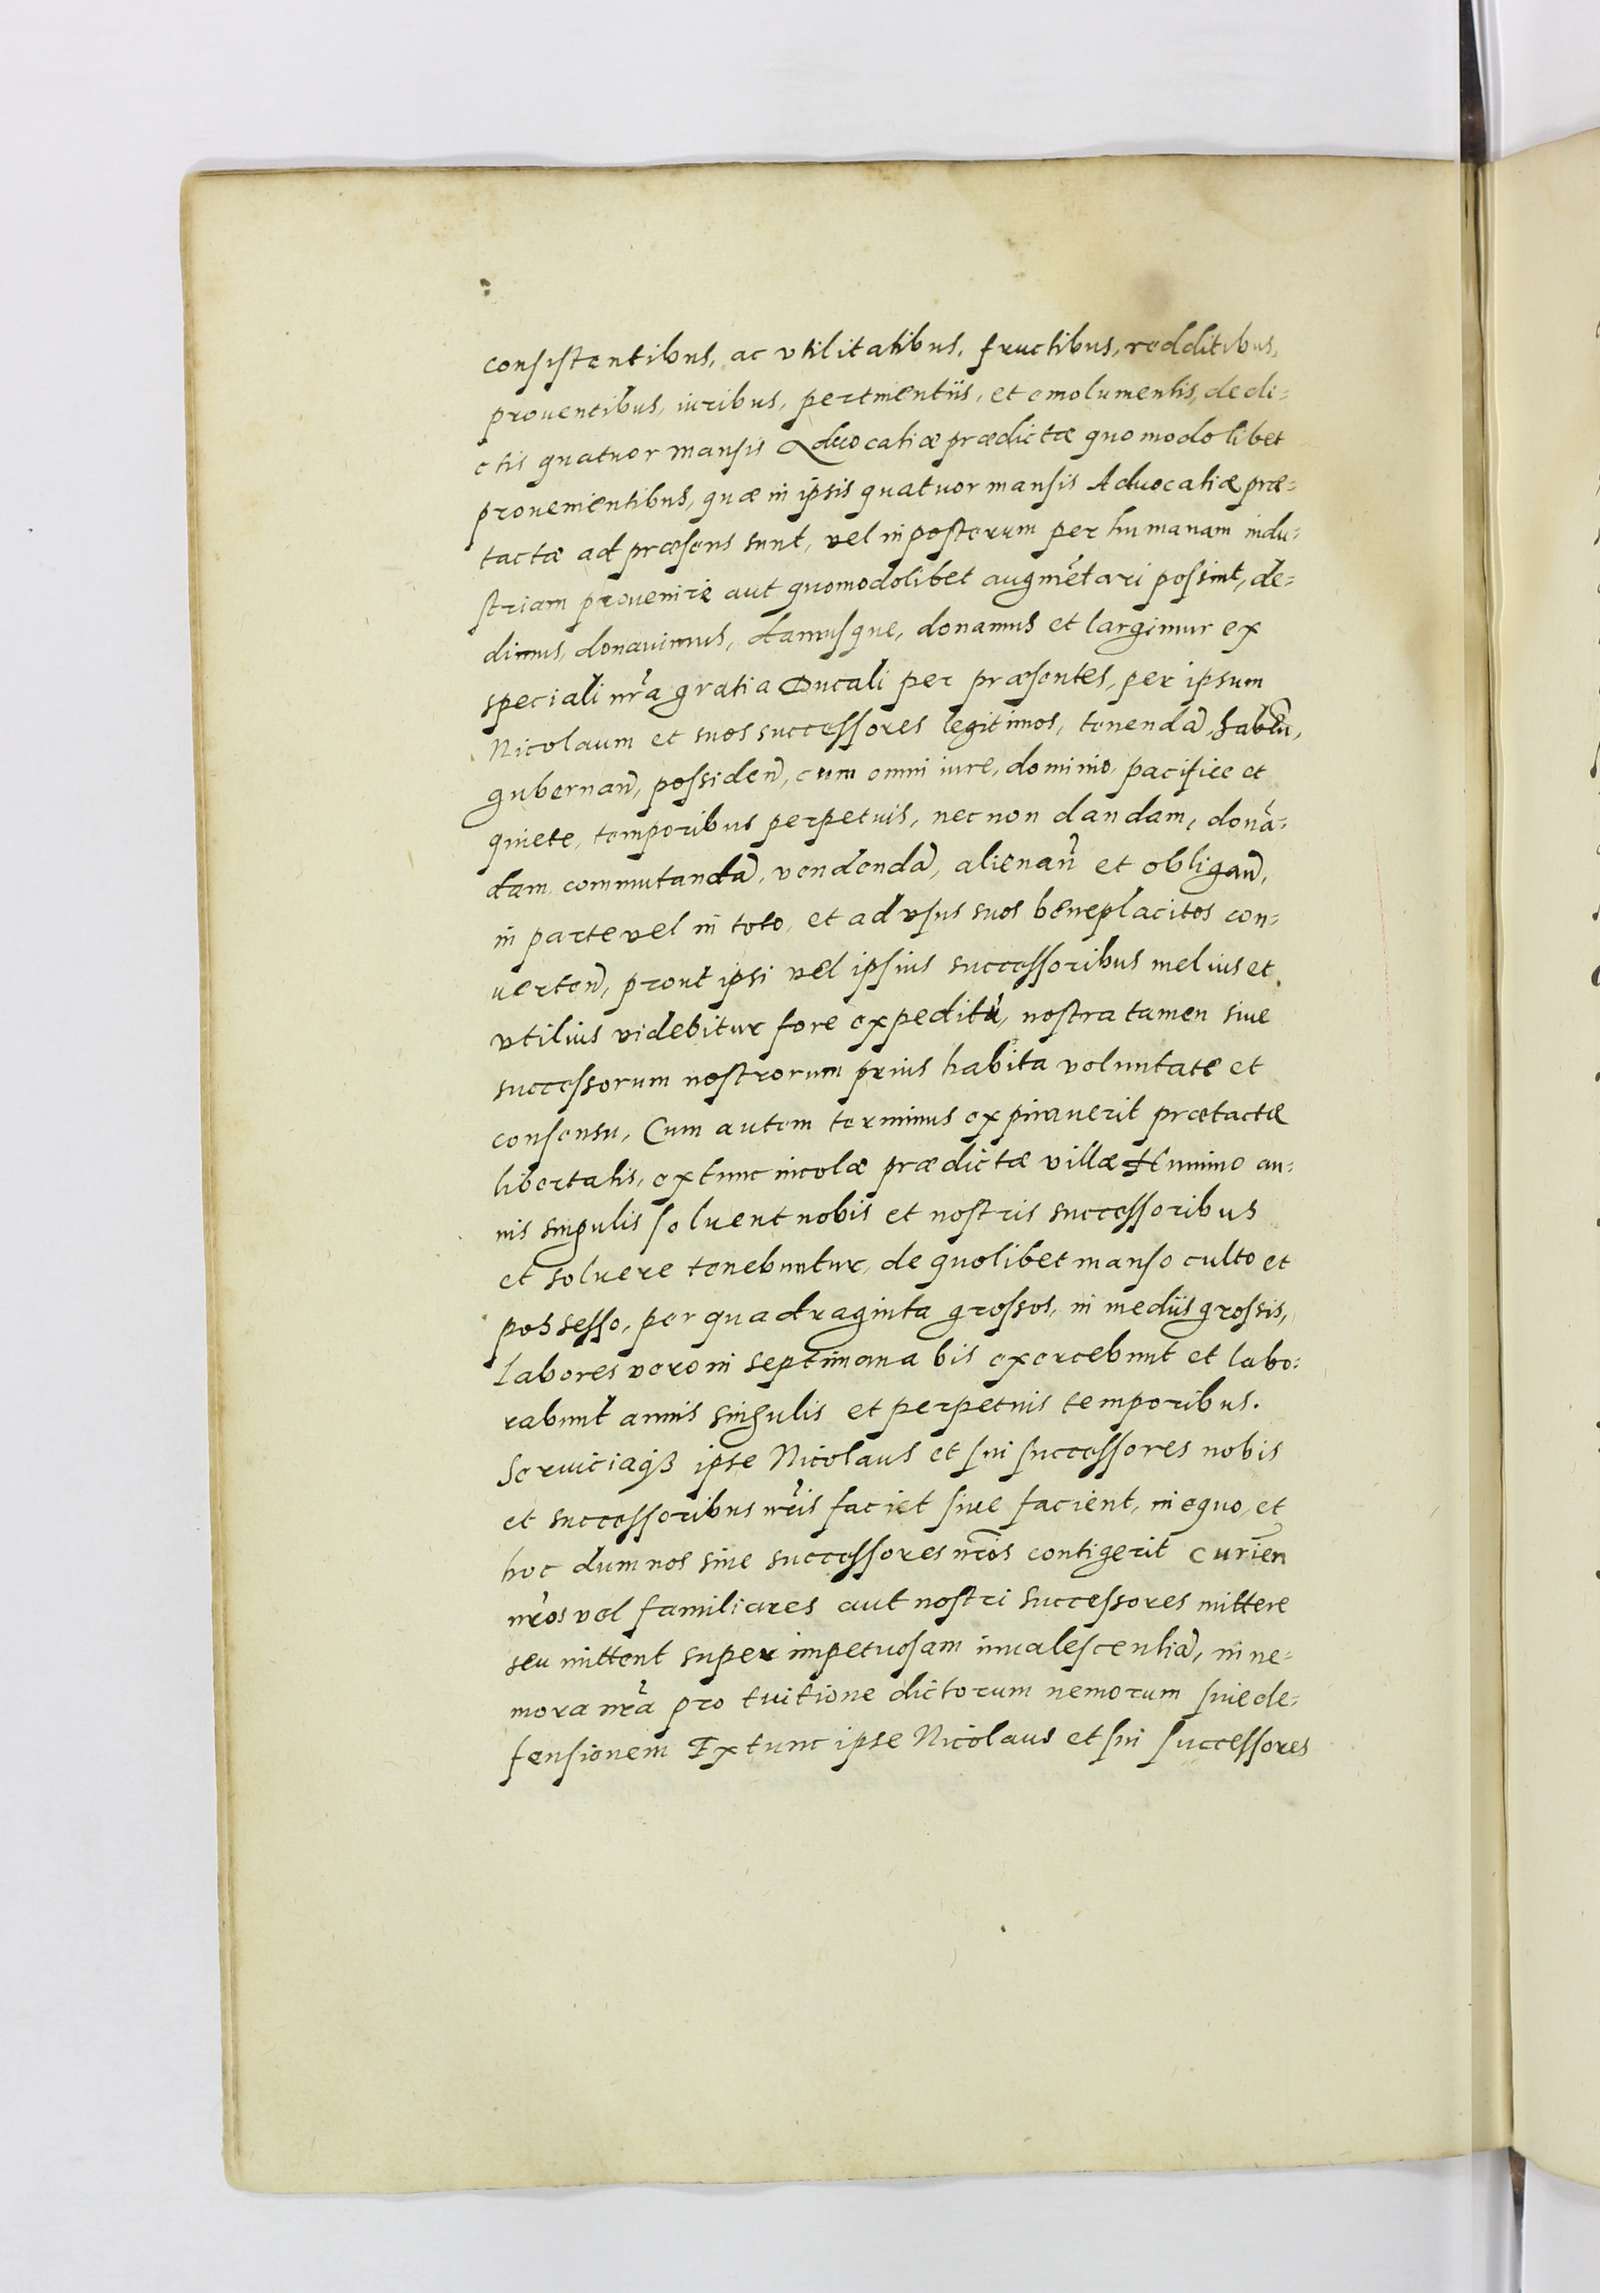 consistentibus, ac vtilitatibus, fructibus, redditibus,
prouentibus, iuribus, pertinentiis, et emolumentis, de di=
ctis quatuor mansis Aduocatiæ prædictæ quomodolibet
prouenientibus, quæ in ipsis quatuor mansis Aduocatiæ præ=
tactæ ad præsens sunt, vel in posterum per humanam indu=
striam prouenire aut quomodolibet augmẽtari possint, de=
dimus, donauimus, damusque, donamus et largimur ex
speciali nr̃a gratia Ducali per præsentes, per ipsum
Nicolaum et suos successores legitimos, tenendam̃, habeñ,
gubernañ, possideñ, cum omni iure, dominio, pacifice et
quiete, temporibus perpetuis, nec non dandam, donã=
dam commutandã, vendendã, alienañ et obligañ,
in parte vel in toto, et ad vsus suos beneplacitos con=
uerteñ, prout ipsi vel ipsius successoribus melius et
vtilius videbitur fore expeditũ, nostra tamen siue
successorum nostrorum prius habita voluntate et
consensu, Cum autem terminus expirauerit prætactæ
libertatis, extunc incolæ prædictæ villæ Humino an=
nis singulis soluent nobis et nostris successoribus
et soluere tenebuntur, de quolibet manso culto et
possesso, per quadraginta grossos, in mediis grossis,
labores vero in septimana bis exercebunt et labo=
rabunt annis singulis et perpetuis temporibus.
Seruiciaqȝ ipse Nicolaus et sui successores nobis
et successoribus nr̃is faciet siue facient, in equo, et
hoc dum nos siue successores nr̃os contigerit curieñ
nr̃os vel familiares aut nostri successores mittere
seu mittent super impetuosam inualescentiã, in ne=
mora nr̃a pro tuitione dictorum nemorum siue de=
fensionem Extunc ipse Nicolaus et sui successores